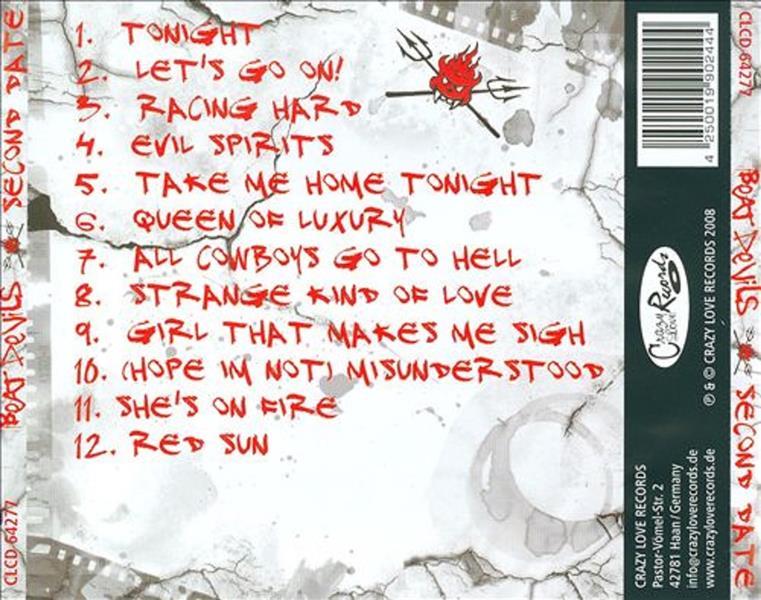 1. TONIGHT
2. LET'S GO ON!
3. RACING HARD
4. EVIL SPIRITS
5. TAKE ME HOME TONIGHT
6. QUEEN OF LUXURY
7. ALL COWBOYS GO TO HELL
8. STRANGE KIND OF LOVE
9. GIRL THAT MAKES ME SIGH
10. (HOPE IM NOT) MISUNDERSTOOD
11. SHE'S ON FIRE
12. RED SUN
BOAT DEVILS SECOND DATE
CLCD-64277
4 250019 902444
Crazy Love Records
℗ & © CRAZY LOVE RECORDS 2008
CRAZY LOVE RECORDS
Pastor-Vömel-Str. 2
42781 Haan/Germany
info@crazyloverecords.de
www.crazyloverecords.de
CLCD-64277
BOAT DEVILS SECOND DATE